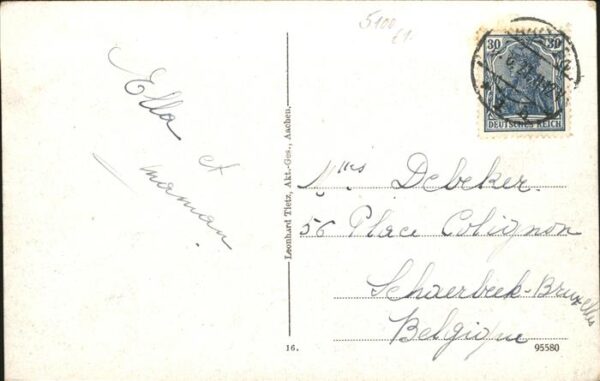 5100
Ella et
maman
Leonhard Tietz, Akt.-Ges., Aachen.
30 30
DEUTSCHES REICH
Mlles Debeker
56 Place Colignon
Schaerbeek-Bruxelles
Belgique
16.
95580